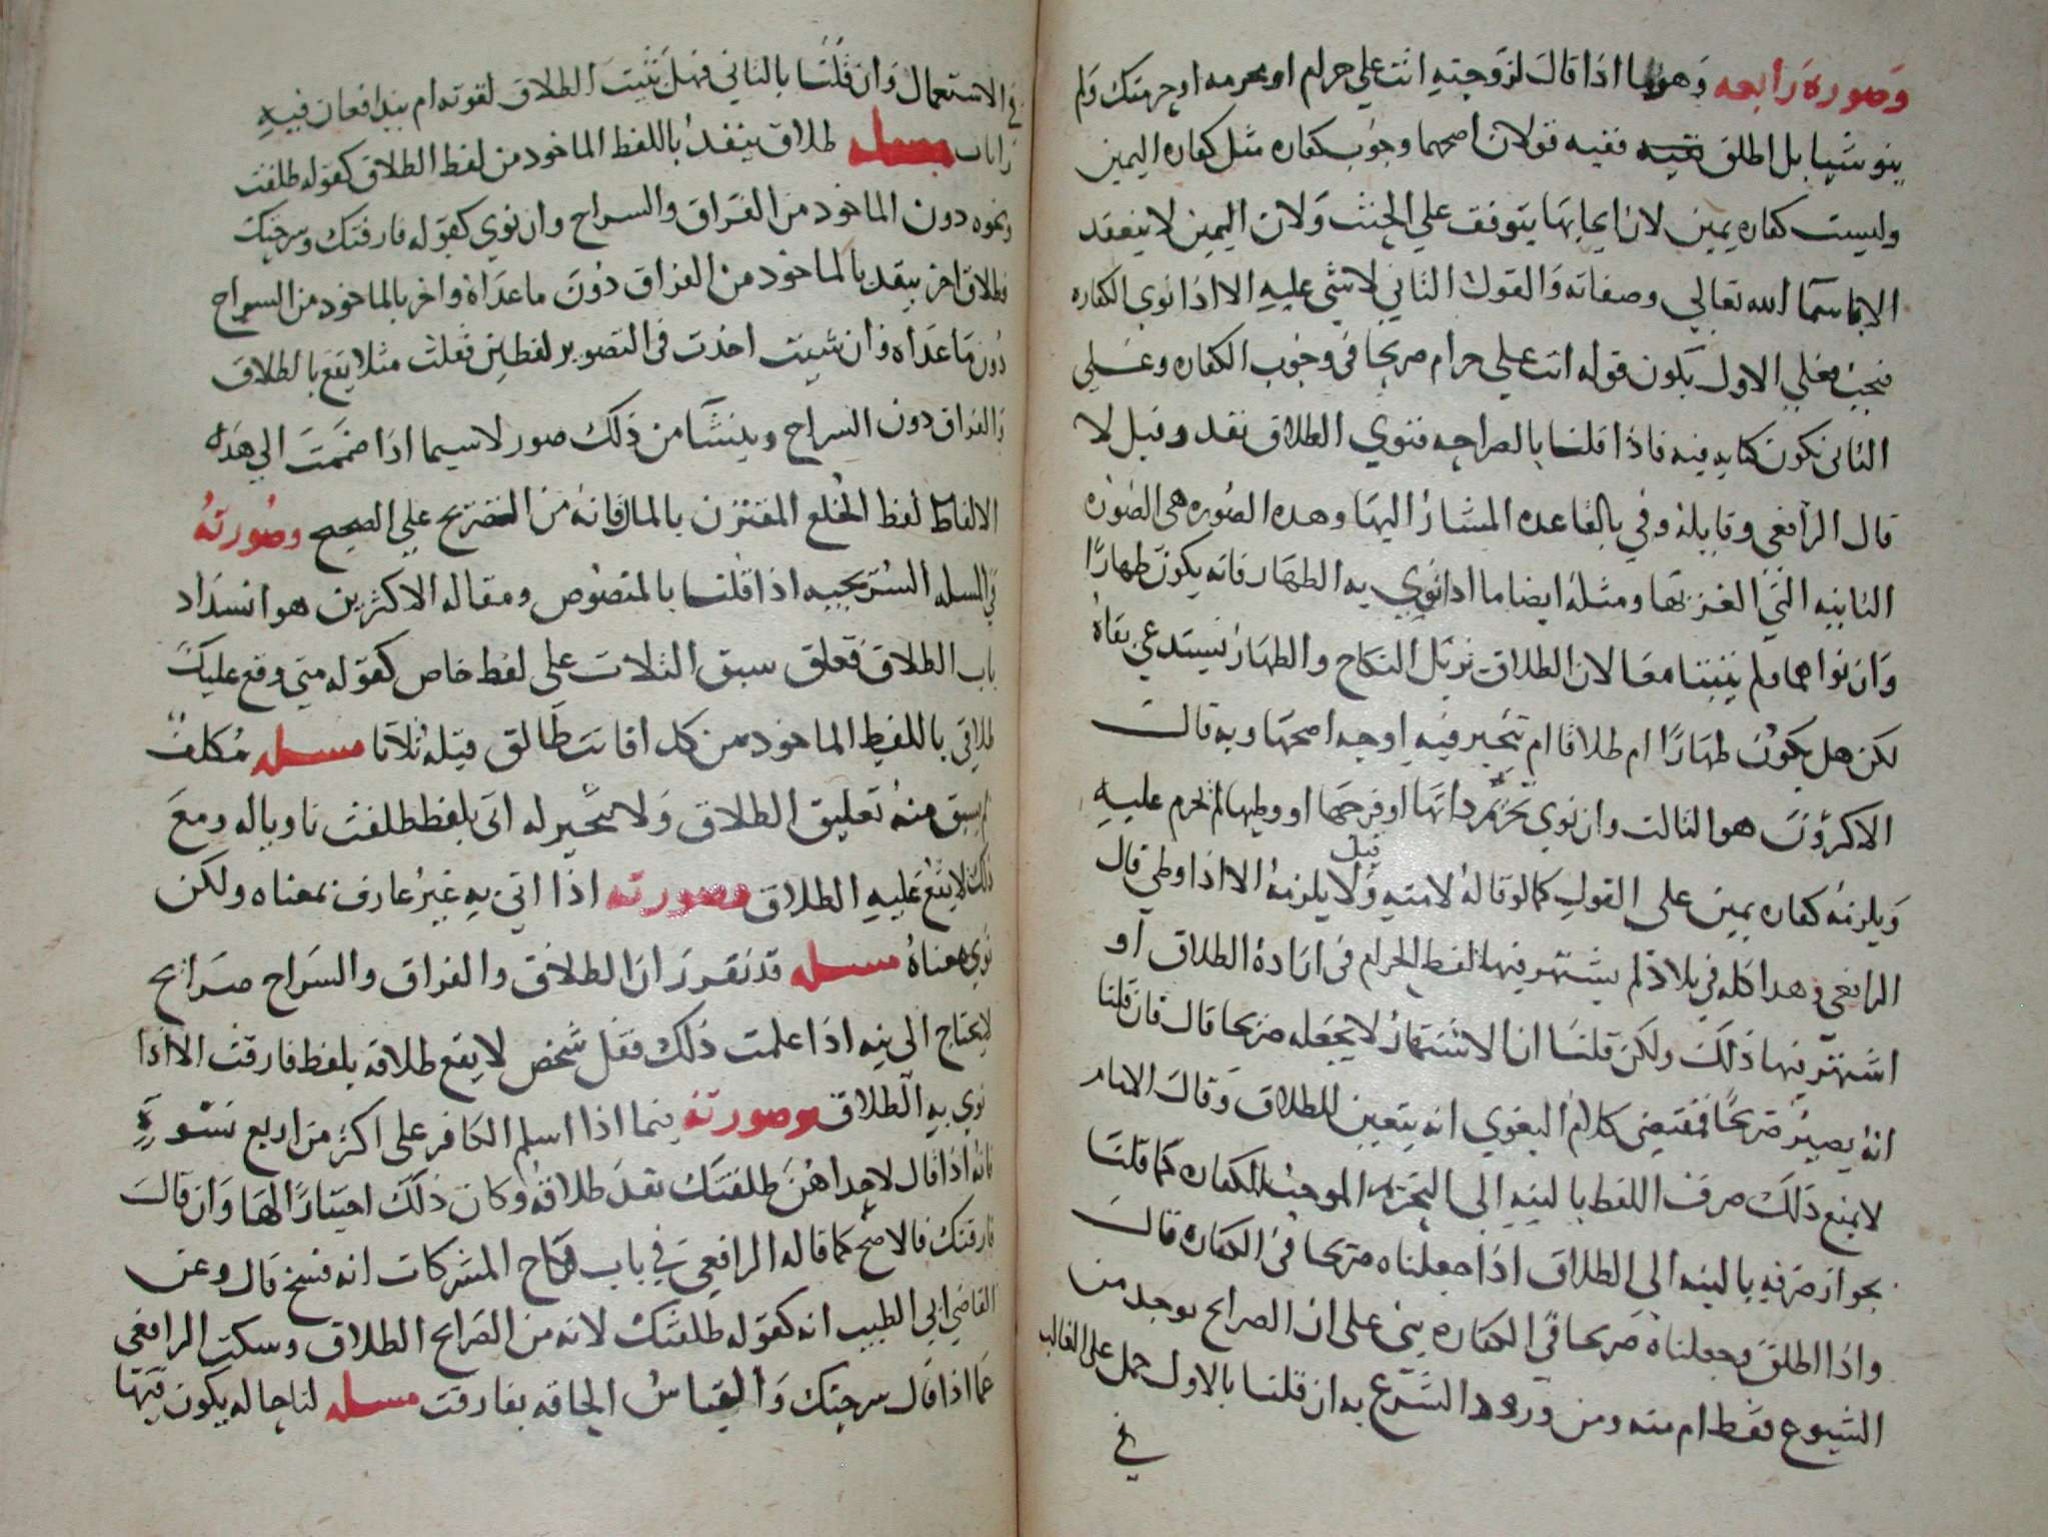 وصورة رابعه وهو ما اذا قال لزوجته انت علي حرام او محرمه او حرمتك ولم
ينو شيا بل اطلق ففيه قولان اصحهما وجوب كفاره مثل كفاره اليمين
وليست كفاره يمين لان ايجابها يتوقف على الحنث ولان اليمين لا ينعقد
الا باسما الله تعالي وصفاته والقول الثاني لا شي عليه الا اذا نوي الكفاره
فحينيذ فعلي الاول يكون قوله انت علي حرام صريحا في وجوب الكفاره وعلي
الثاني تكون كنايه فيه فاذا قلنا بالصراحه فنوي الطلاق نفد وقيل لا
قال الرافعي وقايله وفي بالقاعده المشار اليها وهده الصوره هي الصوره
الثانيه التي الغز بها ومثله ايضا ما اذا نوي به الظهار فانه يكون ظهارا
وان نواهما فلم يثبتا معا لان الطلاق يزيل النكاح والظهار يستدعي بقاه
لكن هل يكون ظهارا ام طلاقا ام يتخير فيه اوجه اصحها وبه قال
الاكثرون هو الثالث وان نوي تحريم داتها او فرجها او وطيها لم تحرم عليه
ويلزمه كفاره يمين على القول كما لو قاله لامته وقيل لا يلزمه الا اذا وطي قال
الرافعي وهدا كله في بلاد لم يشتهر فيها لفظ الحرام في ارادة الطلاق او
اشتهر فيها ذلك ولكن قلنا ان الاشتهار لا يجعله صريحا قال فان قلنا
انه يصير صريحا فمقتضى كلام البغوي انه يتعين للطلاق وقال الامام
لا يمنع ذلك صرف اللفظ بالنيه الى التحريم الموجب للكفاره كما قلنا
بجواز صرفه بالنيه الى الطلاق اذا جعلناه صريحا في الكفاره قال
واذا اطلق وجعلناه صريحا في الكفاره بني على ان الصرايح توجد من
الشيوع فقط ام منه ومن ورود الشرع به ان قلنا بالاول حمل على الغالب
في
في الاستعمال وان قلنا بالثاني فهل يثبت الطلاق لقوته ام يتدافعان فيه
رايان مسله طلاق ينفد باللفظ الماخود من لفظ الطلاق كقوله طلقت
ونحوه دون الماخود من الفراق والسراح وان نوي كقوله فارقتك وسرحتك
وطلاق اخر ينفد بالماخود من الفراق دون ما عداه واخر بالماخود من السراح
دون ما عداه وان شيت اخذت في التصوير لفظين فقلت مثلا يقع بالطلاق
والفراق دون السراح وينشا من ذلك صور لا سيما اذا ضممت الي هده
الالفاظ لفظ الخلع المقترن بالمال فانه من الصريح على الصحيح وصورته
في المسله السريجيه اذا قلنا بالمنصوص ومقاله الاكثرين هو انسداد
باب الطلاق فعلق سبق الثلات على لفظ خاص كقوله متى وقع عليك
طلاقي باللفظ الماخود من كدا فانت طالق قبله ثلاثا مسله مكلف
لم يسبق منه تعليق الطلاق ولا تخيير له اتى بلفظ طلقت ناويا له ومع
ذلك لا يقع عليه الطلاق وصورته اذا اتي به غير عارف بمعناه ولكن
نوي معناه مسله قد تقرر ان الطلاق والفراق والسراح صرايح
لا يحتاج الى نيه اذا علمت ذلك فقل شخص لا يقع طلاقه بلفظ فارقت الا اذا
نوي به الطلاق وصورته فيما اذا اسلم الكافر على اكثر من اربع نسوة
فانه اذا قال لاحداهن طلقتك نفد طلاقه وكان ذلك اختيارا لها وان قال
فارقتك فالاصح كما قاله الرافعي في باب نكاح المشركات انه فسخ قال وعن
القاضي ابي الطيب انه كقوله طلقتك لانه من الصرايح الطلاق وسكت الرافعي
عما اذا قال سرحتك والقياس الحاقه بفارقت مسله لنا حاله يكون فيها